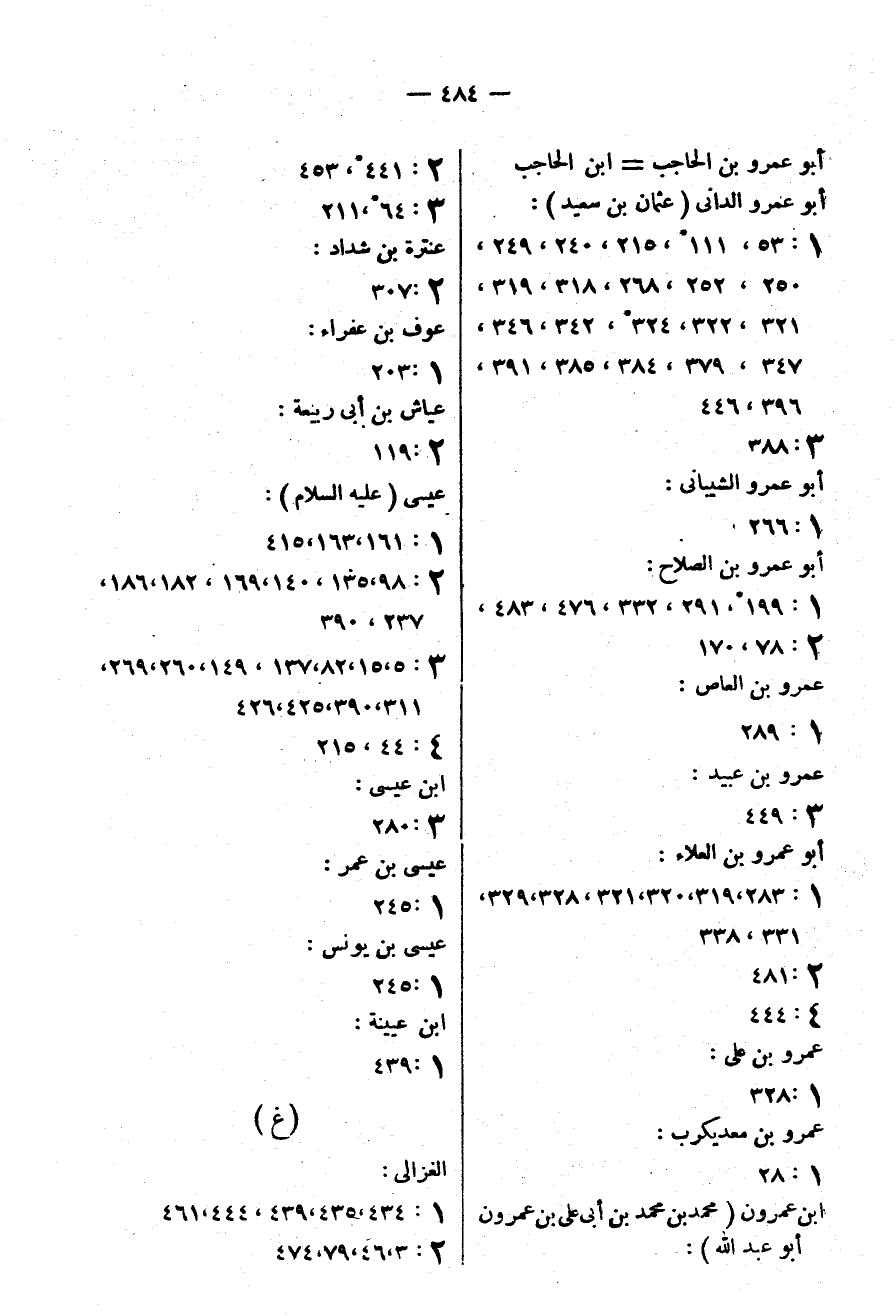 — ٤٨٤ —
أبو عمرو بن الحاجب = ابن الحاجب
أبو عمرو الدانى ( عثمان بن سعيد ) :
١ : ٥٣ ، ١١١* ، ٢١٥ ، ٢٤٠ ، ٢٤٩ ،
٢٥٠ ، ٢٥٢ ، ٢٦٨ ، ٣١٨ ، ٣١٩ ،
٣٢١ ، ٣٢٢ ، ٣٢٤* ، ٣٤٢ ، ٣٤٦ ،
٣٤٧ ، ٣٧٩ ، ٣٨٤ ، ٣٨٥ ، ٣٩١ ،
٣٩٦ ، ٤٤٦
٣ : ٣٨٨
أبو عمرو الشيبانى :
١ : ٢٦٦
أبو عمرو بن الصلاح :
١ : ١٩٩* ، ٢٩١ ، ٣٣٢ ، ٤٧٦ ، ٤٨٣ ،
٢ : ٧٨ ، ١٧٠
عمرو بن العاص :
١ : ٢٨٩
عمرو بن عبيد :
٣ : ٤٤٩
أبو عمرو بن العلاء :
١ : ٢٨٣ ، ٣١٩ ، ٣٢٠ ، ٣٢١ ، ٣٢٨ ، ٣٢٩ ،
٣٣١ ، ٣٣٨
٢ : ٤٨١
٤ : ٤٤٤
عمرو بن على :
١ : ٣٢٨
عمرو بن معديكرب :
١ : ٢٨
ابن عمرون ( محمد بن محمد بن أبى على بن عمرون
أبو عبد الله ) :
٢ : ٤٤١* ، ٤٥٣
٣ : ٦٤* ، ٢١١
عنترة بن شداد :
٢ : ٣٠٧
عوف بن عفراء :
١ : ٢٠٣
عياش بن أبى ربيعة :
٢ : ١١٩
عيسى ( عليه السلام ) :
١ : ١٦١ ، ١٦٣ ، ٤١٥
٢ : ٩٨ ، ١٣٥ ، ١٤٠ ، ١٦٩ ، ١٨٢ ، ١٨٦ ،
٢٣٧ ، ٣٩٠
٣ : ٥ ، ١٥ ، ٨٢ ، ١٣٧ ، ١٤٩ ، ٢٦٠ ، ٢٦٩ ،
٣١١ ، ٣٩٠ ، ٤٢٥ ، ٤٢٦
٤ : ٤٤ ، ٢١٥
ابن عيسى :
٣ : ٢٨٠
عيسى بن عمر :
١ : ٢٤٥
عيسى بن يونس :
١ : ٢٤٥
ابن عيينة :
١ : ٤٣٩
( غ )
الغزالى :
١ : ٤٣٤ ، ٤٣٥ ، ٤٣٩ ، ٤٤٤ ، ٤٦١
٢ : ٣ ، ٤٦ ، ٧٩ ، ٤٧٤